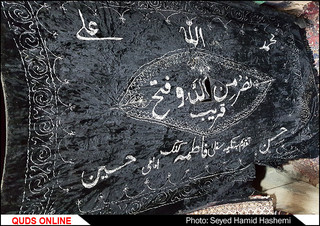 محمد الله علی
نصر من الله و فتح
قریب
حسن فاطمه حسین
QUDS ONLINE
Photo: Seyed Hamid Hashemi